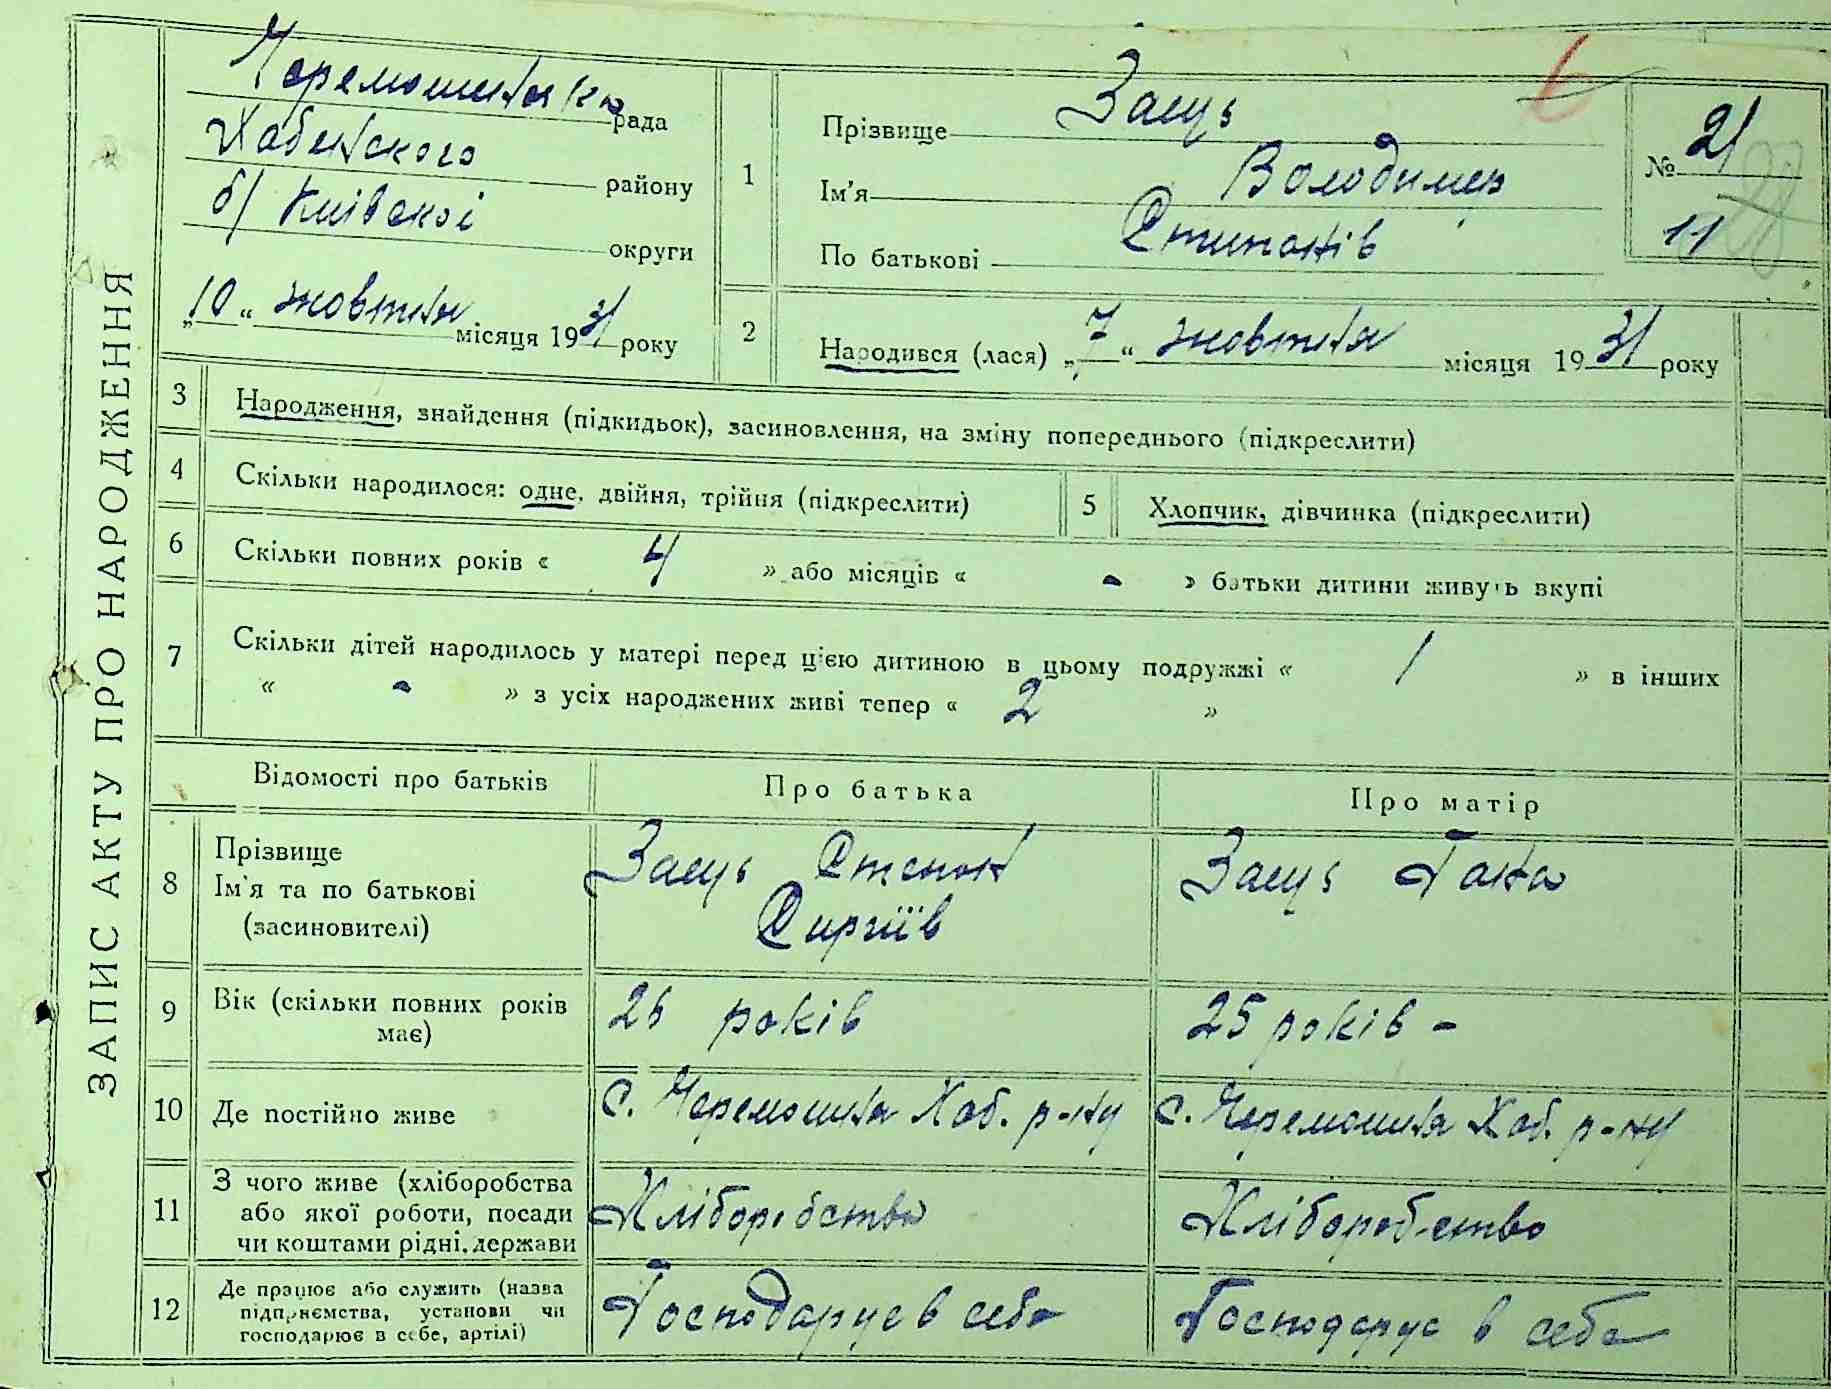 ЗАПИС АКТУ ПРО НАРОДЖЕННЯ
Черемошнянська рада
Хабенського району
б/ Київскої округи
„10“ жовтня місяця 1931 року
1
Прізвище Заєць
Ім'я Володимер
По батькові Стипанів
№ 21
11
28
6
2
Народився (лася) „7“ жовтня місяця 1931 року
3 Народження, знайдення (підкидьок), засиновлення, на зміну попереднього (підкреслити)
4 Скільки народилося: одне, двійня, трійня (підкреслити)
5 Хлопчик, дівчинка (підкреслити)
6 Скільки повних років « 4 » або місяців « - » батьки дитини живуть вкупі
7 Скільки дітей народилось у матері перед цією дитиною в цьому подружжі « 1 » в інших
« - » з усіх народжених живі тепер « 2 »
Відомості про батьків Про батька Про матір
8 Прізвище
Ім'я та по батькові
(засиновителі)
Заєць Степан
Сиргіїв
Заєць Гана
9 Вік (скільки повних років
має)
26 років
25 років -
10 Де постійно живе
с. Черемошня Хаб. р-ну
с. Черемошня Хаб. р-ну
11 З чого живе (хліборобства
або якої роботи, посади
чи коштами рідні, держави
Хліборобство
Хлібороб-ство
12 Де працює або служить (назва
підприємства, установи чи
господарює в себе, артілі)
Господарує в себе
Господарує в себе